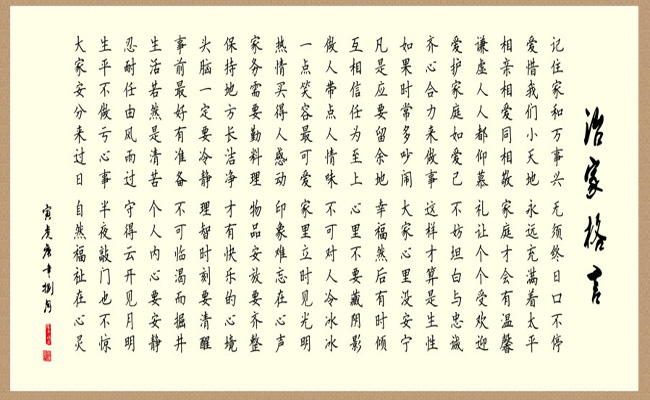 治家格言
记住家和万事兴 无须终日口不停
爱惜我们小天地 永远充满着太平
相亲相爱同相敬 家庭才会有温馨
谦虚人人都仰慕 礼让个个受欢迎
爱护家庭如爱己 不妨坦白与忠诚
齐心合力来做事 这样才算是生性
如果时常多吵闹 大家心里没安宁
凡是应要留余地 幸福然后有时倾
互相信任为至上 心里不要藏阴影
做人带点人情味 不可对人冷冰冰
一点笑容最可爱 家里立时见光明
热情买得人感动 印象难忘在心声
家务需要勤料理 物品安放要齐整
保持地方长洁净 才有快乐的心境
头脑一定要冷静 理智时刻要清醒
事前最好有准备 不可临渴而掘井
生活苦然是清苦 个人内心要安静
忍耐任由风雨过 守得云开见月明
生平不做亏心事 半夜敲门也不惊
大家安分来过日 自然福祉在心灵
寅虎庚年捌月